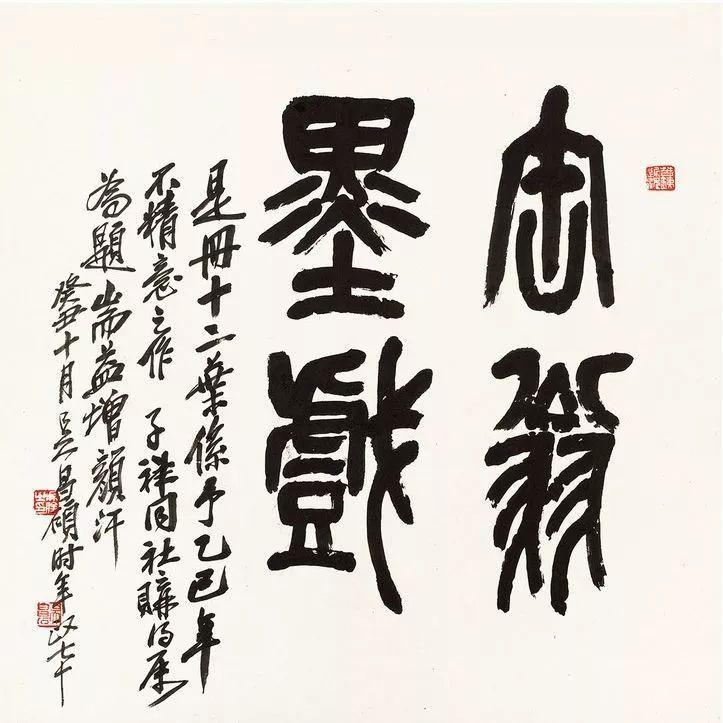 缶翁
墨戲
是冊十二葉係予乙巳年
不精意之作 子祥同社購得屬
為題耑益增顏汗
癸丑十月吳昌碩時年政七十